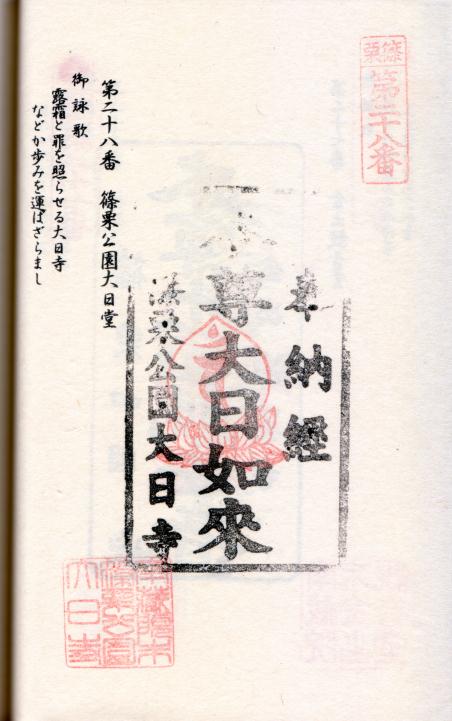 篠栗
第二十八番
奉納經
本尊大日如來
篠栗公園大日寺
第二十八番 篠栗公園大日堂
御詠歌
露霜と罪を照らせる大日寺
などか歩みを運ばざらまし